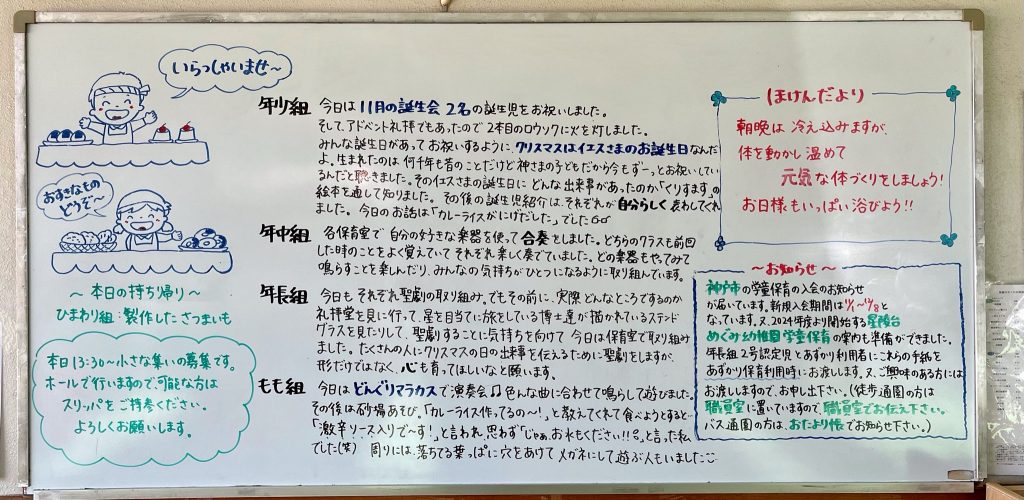 いらっしゃいませ〜
おすきなもの
どうぞ〜
〜 本日の持ち帰り 〜
ひまわり組:製作したさつまいも
本日13:30〜小さな集いの募集です。
ホールで行いますので、可能な方は
スリッパをご持参ください。
よろしくお願いします。
年少組 今日は11月の誕生会 2名の誕生児をお祝いしました。
そして、アドベント礼拝でもあったので2本目のロウソクに火を灯しました。
みんな誕生日があってお祝いするように、クリスマスはイエスさまのお誕生日なんだ
よ。生まれたのは何千年も昔のことだけど神さまの子どもだから今もず〜っとお祝いしてい
るんだと聴きました。そのイエスさまの誕生日にどんな出来事があったのか、「くりすます」の
絵本を通して知りました。その後の誕生児紹介は、それぞれが自分らしく表わしてくれ
ました。今日のお話は「カレーライスがにげだした」でした
年中組 各保育室で自分の好きな楽器を使って合奏をしました。どちらのクラスも前回
した時のことをよく覚えていてそれぞれ楽しく奏でていました。どの楽器もやってみて
鳴らすことを楽しんだり、みんなの気持ちがひとつになるように取り組んでいます。
年長組 今日もそれぞれ聖劇の取り組み。でもその前に、実際どんなところでするのか
礼拝堂を見に行って、星を目当てに旅をしている博士達が描かれているステンド
グラスを見たりして、聖劇することに気持ちを向けて今日は保育室で取り組み
ました。たくさんの人にクリスマスの日の出来事を伝えるために聖劇をしますが、
形だけではなく、心も育ってほしいなと願います。
もも組 今日はどんぐりマラカスで演奏会♫色んな曲に合わせて鳴らして遊びました。
その後は砂場あそび。「カレーライス作ってるの〜!」と教えてくれて食べようとすると…
「激辛ソース入りで〜す!」と言われ、思わず「じゃあ、お水もください!!」と言った私
でした(笑) 周りには、落ちてる葉っぱに穴をあけてメガネにして遊ぶ人もいました
ほけんだより
朝晩は冷え込みますが、
体を動かし温めて
元気な体づくりをしましょう!
お日様もいっぱい浴びよう!!
〜お知らせ〜
神戸市の学童保育の入会のお知らせ
が届いています。新規入会期間は1/4〜1/18と
なっています。又、2024年度より開始する星陵台
めぐみ幼稚園学童保育の案内も準備ができました。
年長組2号認定児とあずかり利用者にこれらの手紙を
あずかり保育利用時にお渡します。又、ご興味のある方には
お渡ししますので、お申し出下さい。(徒歩通園の方は
職員室に置いていますので職員室でお伝え下さい。
バス通園の方は、おたより帳でお知らせ下さい。)